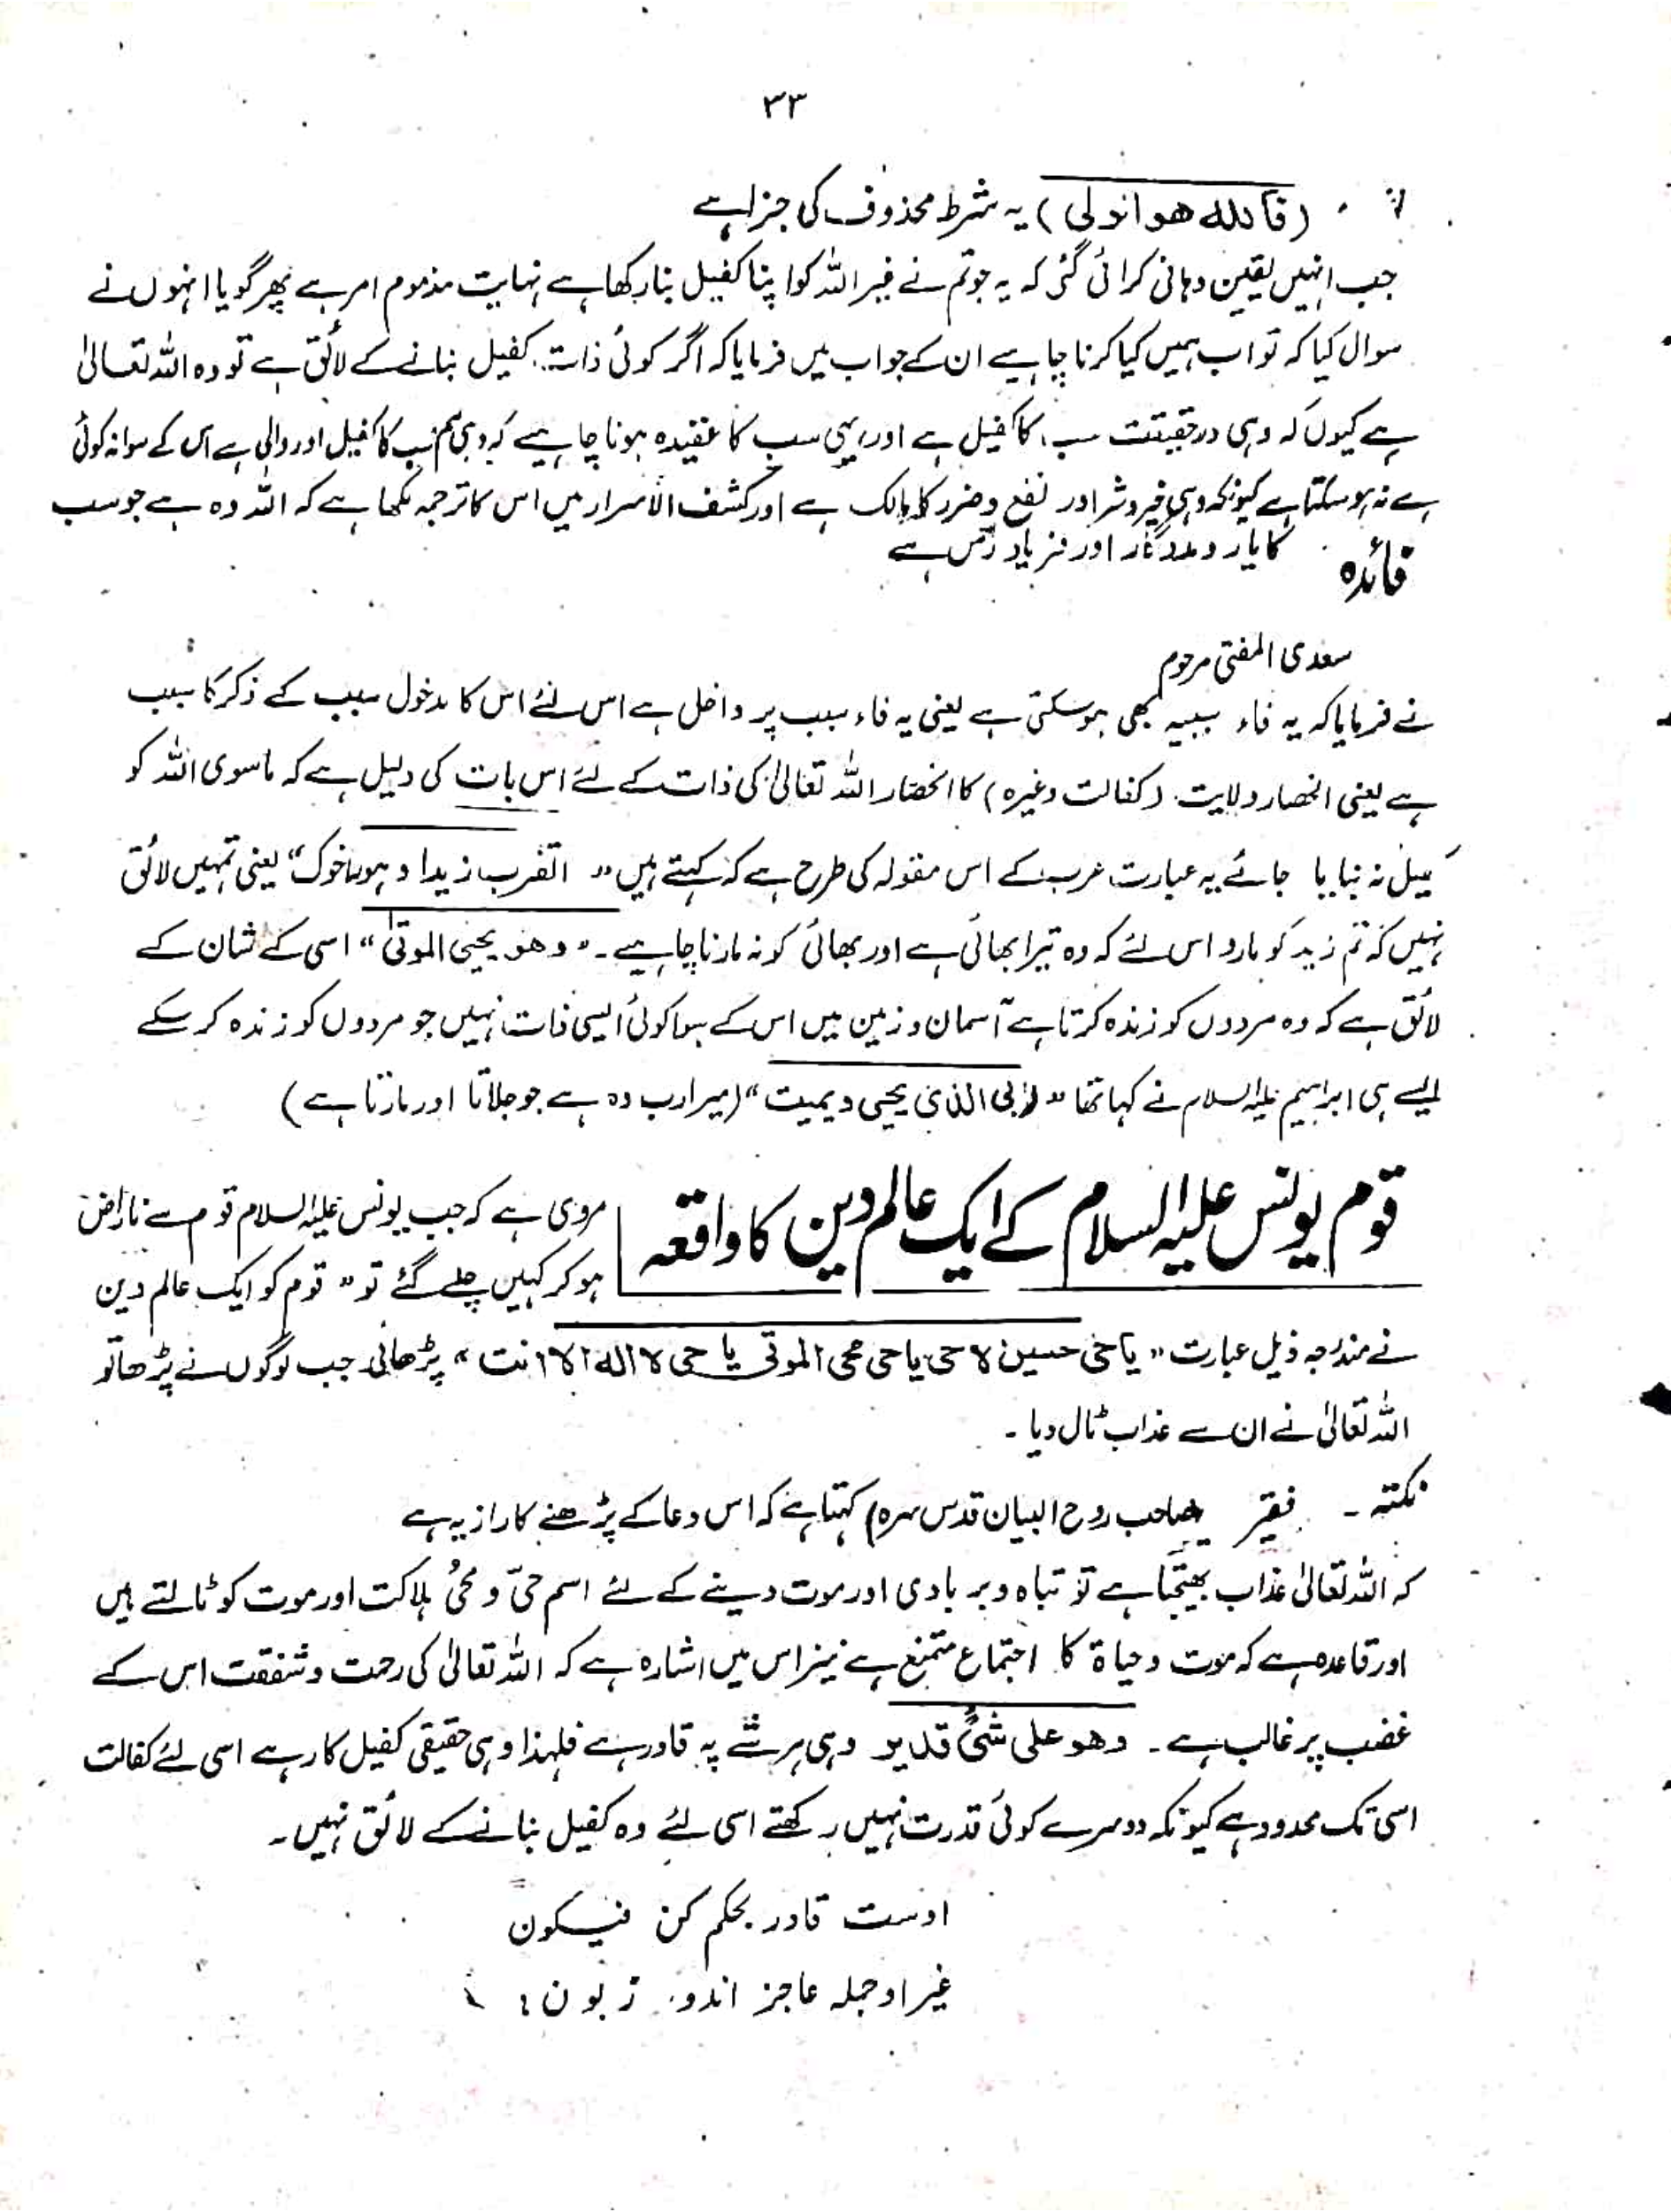 ۳۳
(فاللہ ھو الولی) یہ شرط محذوف کی جزا ہے
جب انہیں یقین دہانی کرائی گئی کہ یہ جو تم نے غیر اللہ کو اپنا کفیل بنا رکھا ہے نہایت مذموم امر ہے پھر گویا انہوں نے
سوال کیا کہ تو اب ہمیں کیا کرنا چاہیے ان کے جواب میں فرمایا کہ اگر کوئی ذات کفیل بنانے کے لائق ہے تو وہ اللہ تعالیٰ
ہے کیوں کہ وہی درحقیقت سب کا کفیل ہے اور یہی سب کا عقیدہ ہونا چاہیے کہ وہی ہم سب کا کفیل اور والی ہے اس کے سوا نہ کوئی
ہے نہ ہو سکتا ہے کیونکہ وہی خیر و شر اور نفع و ضرر کا مالک ہے اور کشف الاسرار میں اس کا ترجمہ لکھا ہے کہ اللہ وہ ہے جو سب
کا یار و مددگار اور فریاد رس ہے
فائدہ
سعدی المفتی مرحوم
نے فرمایا کہ یہ فاء سببیہ بھی ہو سکتی ہے یعنی یہ فاء سبب پر داخل ہے اس لئے اس کا مدخول سبب کے ذکر کا سبب
ہے یعنی انحصار ولایت (کفالت وغیرہ) کا انحصار اللہ تعالیٰ کی ذات کے لئے اس بات کی دلیل ہے کہ ماسوی اللہ کو
کفیل نہ بنایا جائے یہ عبارت عرب کے اس مقولہ کی طرح ہے کہ کہتے ہیں " اتضرب زیدا و ہو اخوک" یعنی تمہیں لائق
نہیں کہ تم زید کو مارو اس لئے کہ وہ تیرا بھائی ہے اور بھائی کو نہ مارنا چاہیے ۔ " وھو یحیی الموتیٰ " اسی کے شان کے
لائق ہے کہ وہ مردوں کو زندہ کرتا ہے آسمان و زمین میں اس کے سوا کوئی ایسی ذات نہیں جو مردوں کو زندہ کر سکے
ایسے ہی ابراہیم علیہ السلام نے کہا تھا " ربی الذی یحیی و یمیت " (میرا رب وہ ہے جو جلاتا اور مارتا ہے)
قوم یونس علیہ السلام کے ایک عالم دین کا واقعہ
مروی ہے کہ جب یونس علیہ السلام قوم سے ناراض
ہو کر کہیں چلے گئے تو " قوم کو ایک عالم دین
نے مندرجہ ذیل عبارت " یا حی حین لا حی یا حی محی الموتی یا حی لا الہ الا انت " پڑھائی جب لوگوں نے پڑھا تو
اللہ تعالیٰ نے ان سے عذاب ٹال دیا ۔
نکتہ ۔ فقیر (صاحب روح البیان قدس سرہ) کہتا ہے کہ اس دعا کے پڑھنے کا راز یہ ہے
کہ اللہ تعالیٰ عذاب بھیجتا ہے تو تباہ و بربادی اور موت دینے کے لئے اسم حیّ و محیُ ہلاکت اور موت کو ٹالتے ہیں
اور قاعدہ ہے کہ موت و حیاۃ کا اجتماع ممتنع ہے نیز اس میں اشارہ ہے کہ اللہ تعالیٰ کی رحمت و شفقت اس کے
غضب پر غالب ہے ۔ وھو علی شئ قدیر وہی ہر شے پہ قادر ہے فلہذا وہی حقیقی کفیل کار ہے اسی لئے کفالت
اسی تک محدود ہے کیونکہ دوسرے کوئی قدرت نہیں رکھتے اسی لئے وہ کفیل بنانے کے لائق نہیں ۔
اوست قادر بحکم کن فیکون
غیر او جملہ عاجز اند و زبون